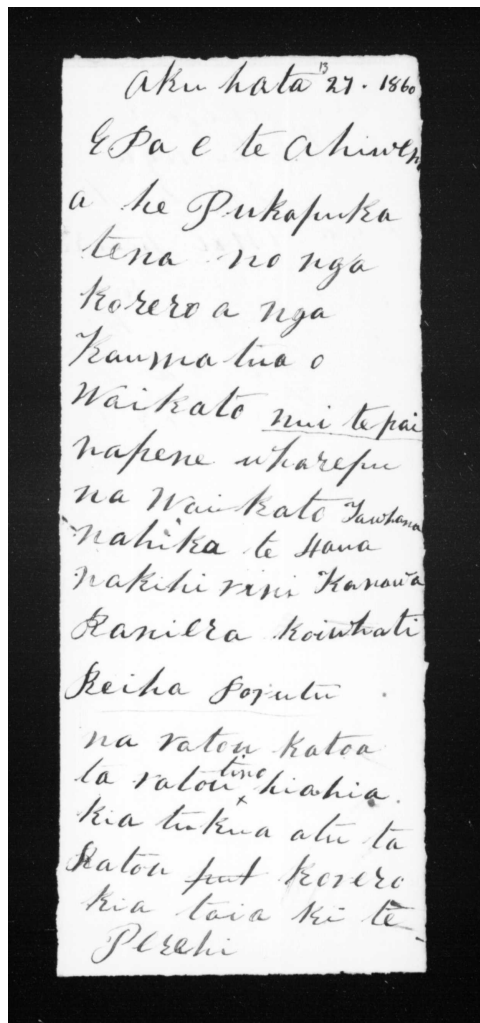 Akuhata 13 27. 1860
E Pa e te Ahiwen
a he Pukapuka
tena no nga
korero a nga
Kaumatua o
Waikato nui te pai
napene wharepu
na Waikato Tawhana
nahika te Haua
nakihi rini Kanawa
Raniera Koiwhati
Reiha Poputu
na ratou katoa
ta ratou tino hiahia.
kia tukua atu ta
Ratou put korero
kia taia ki te
Perehi